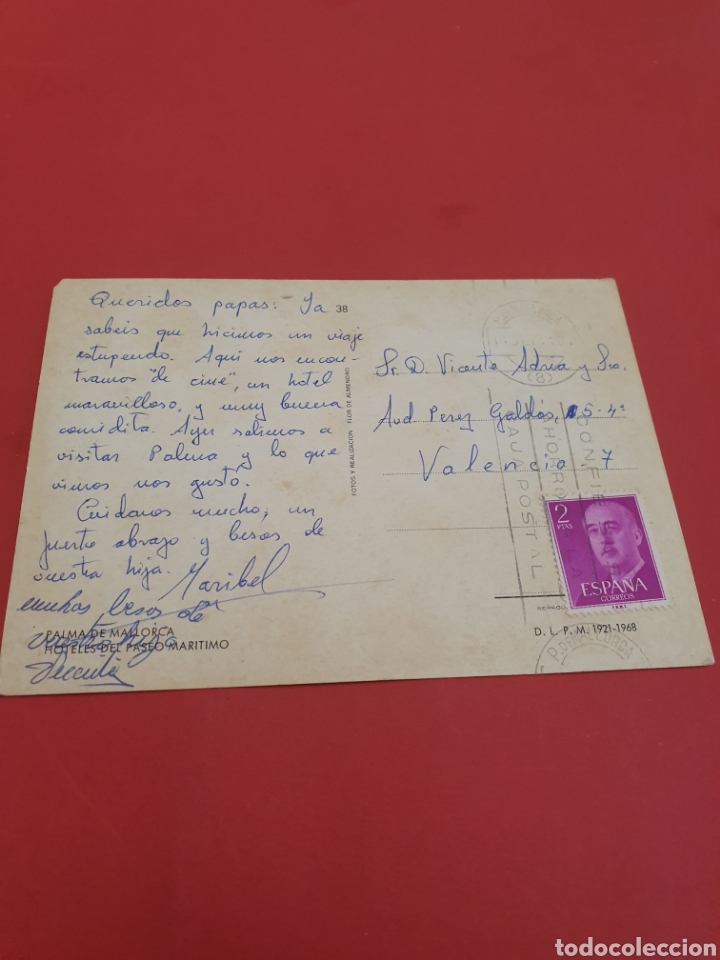 Queridos papas: Ya
sabeis que hicimos un viaje
estupendo. Aqui nos encon-
tramos "de cine", un hotel
maravilloso, y muy buena
comidita. Ayer salimos a
visitar Palma y lo que
vimos nos gustó.
Cuidaros mucho, un
fuerte abrazo y besos de
vuestra hija. Maribel
muchos besos de
vuestro hijo
PALMA DE MALLORCA
HOTELES DEL PASEO MARITIMO
38
FOTOS Y REALIZACION FLOR DE ALMENDRO
Sr. D. Vicente Adria y Sra.
Avd Perez Galdós, 5-4º
Valencia 7
(8)
CONFIE
AHORRO
CAJA POSTAL
2
PTAS
ESPAÑA
CORREOS
D. L. P. M. 1921-1968
P. MALLORCA
todocoleccion